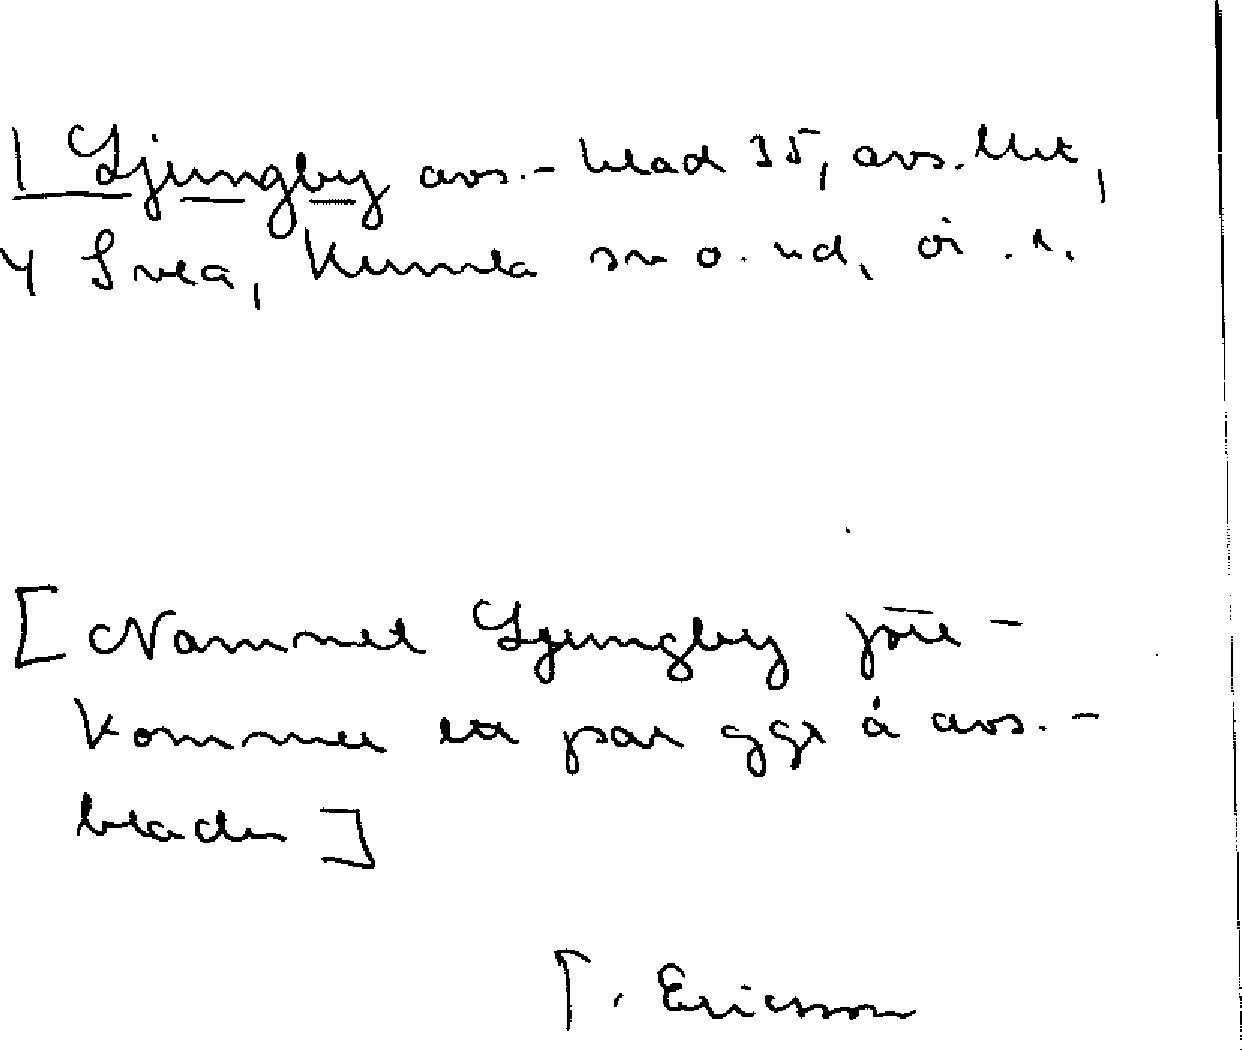 | Ljungby avs.- blad 35, avs.
4 Svea, Kumla sn o. hd,
[Namnet Ljungby före-
kommer ett par ggr å avs.-
bladen]
T. Ericsson